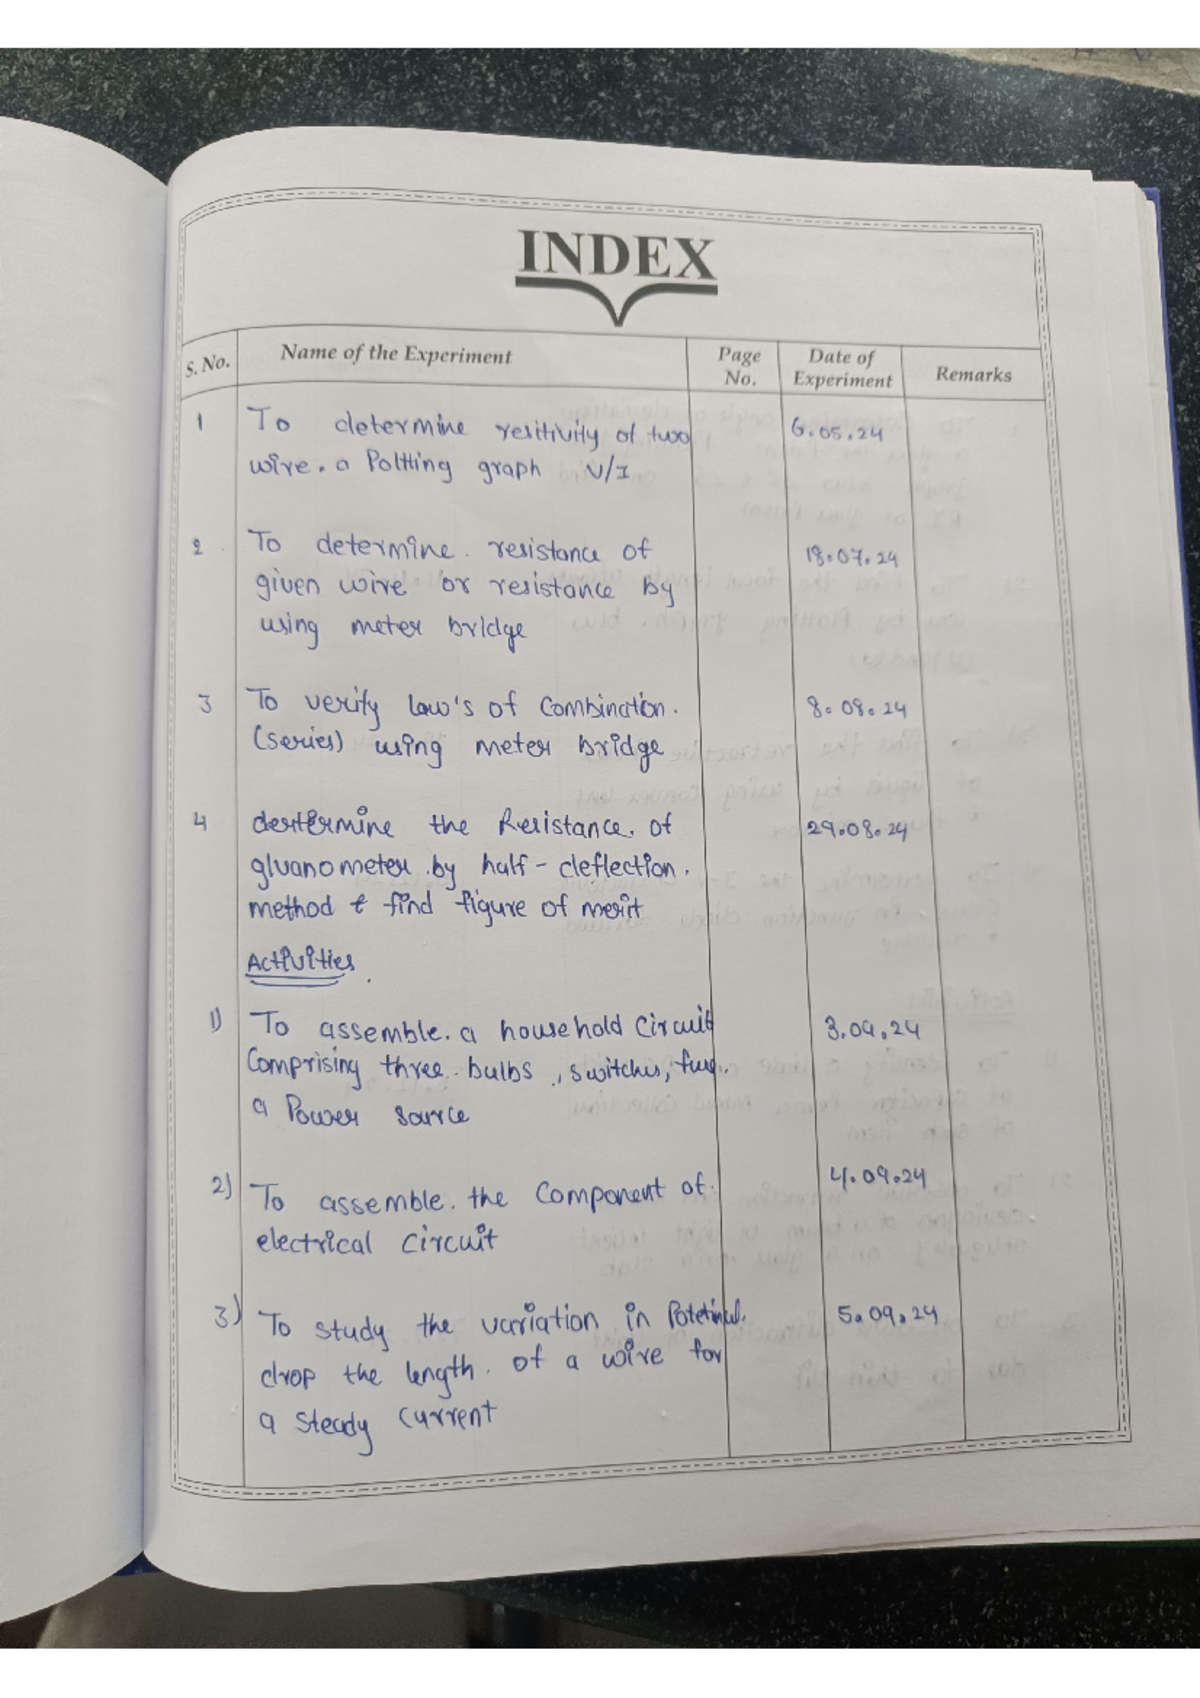 INDEX
S. No. Name of the Experiment Page No. Date of Experiment Remarks
1 To determine resitivity of two 6.05.24
wire. a Poltting graph V/I
2 To determine. resistance of 18.07.24
given wire or resistance by
using meter bridge
3 To verify law's of Combination. 8.08.24
(series) using meter bridge
4 determine the Resistance. of 29.08.24
gluanometer.by half-deflection.
method & find figure of merit
Activities.
1) To assemble. a household Circuit 3.09.24
Comprising three. bulbs, switches, fuse.
a Power source
2) To assemble. the Component of. 4.09.24
electrical circuit
3) To study the variation in Potetinal. 5.09.24
drop the length. of a wire for
a steady current